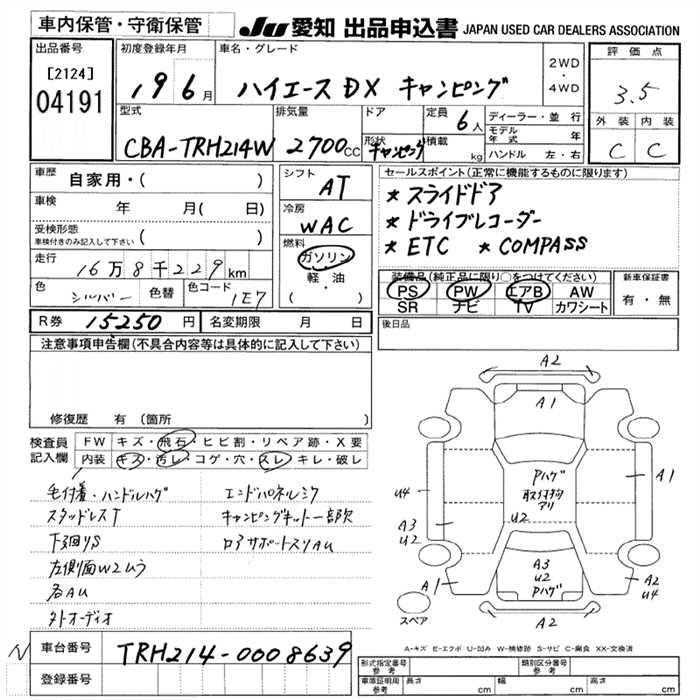 車内保管・守衛保管
JU 愛知 出品申込書 JAPAN USED CAR DEALERS ASSOCIATION
出品番号
[2124]
04191
初度登録年月
19 6月
車名・グレード
ハイエース DX キャンピング
2WD
・
4WD
評価点
3.5
外装 内装
C C
型式
CBA-TRH214W
排気量
2700cc
ドア
形状
キャンピング
定員
6人
積載
kg
ディーラー・並行
モデル年式 年
ハンドル 左・右
車歴
自家用・( )
車検
年 月( 日)
受検形態
車検付きのみ記入して下さい ( )
走行
16万8千229km
色
シルバー
色替
色コード
1E7
シフト
AT
冷房
WAC
燃料
ガソリン
軽・油
( ・ )
セールスポイント(正常に機能するものに限ります)
★ スライドドア
★ ドライブレコーダー
★ ETC ★ COMPASS
装備品(純正品に限り○をつけてください)
PS PW エアB AW
SR ナビ TV カワシート
新車保証書
有・無
後日品
R券 15250円
名変期限 月 日
注意事項申告欄(不具合内容等は具体的に記入して下さい)
修復歴 有(箇所 )
検査員
記入欄
FW キズ・飛石・ヒビ割・リペア跡・X要
内装 キズ・汚レ・コゲ・穴・スレ・キレ・破レ
毛付着・ハンドルハゲ
スタッドレスT
下回りS
左側面W2ムラ
各AU
外オーディオ
エンドパネルシワ
キャンピングキット一部欠
ロアサポートスリAU
A2
A1
Pハゲ
取付拘
アリ
U2
A1
U4
A3
U2
A3
U2
Pハゲ
A1
A2
U4
A2
スペア
A-キズ E-エクボ U-凹み W-補修跡 S-サビ C-腐食 XX-交換済
N
車台番号
TRH214-0008639
登録番号
形式指定番号
参考
類別区分番号
参考
車庫証明用
参考
長さ cm
幅 cm
高さ cm